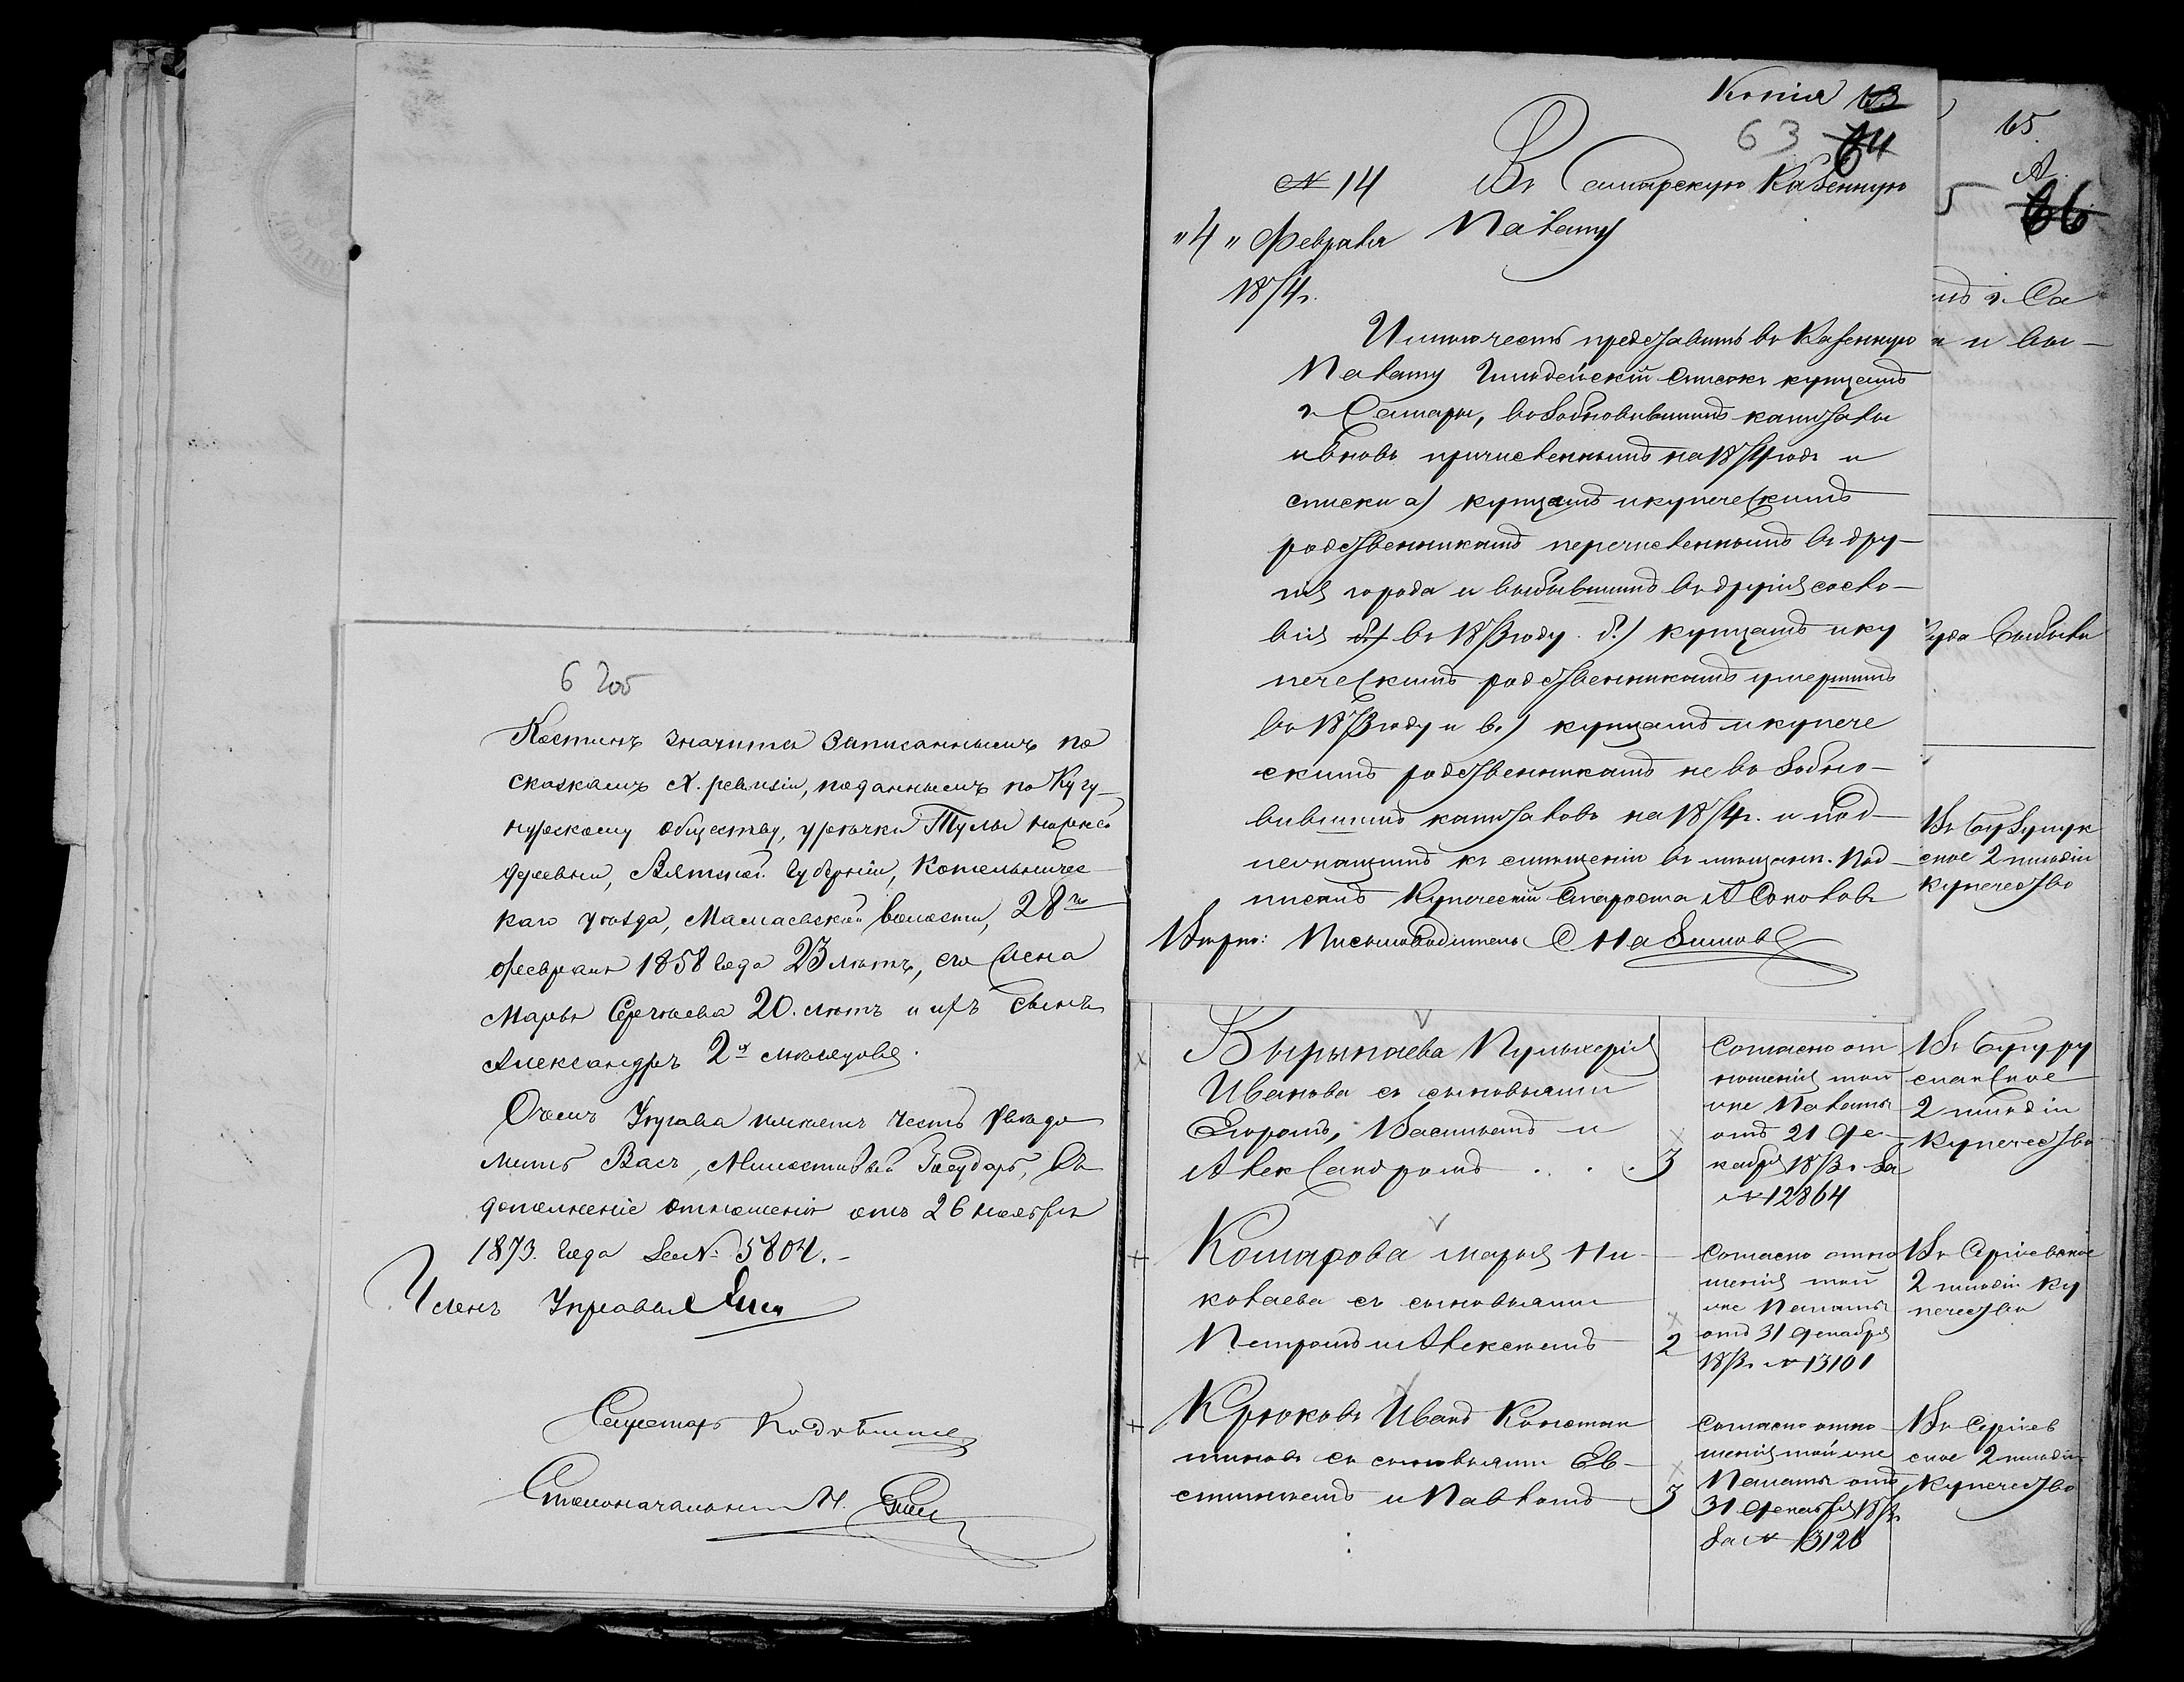 6 2об
Костинъ значится записаннымъ по
сказкамъ X. ревизіи, поданнымъ по Кугу-
нурскому обществу, урѣчки Тулы
деревни, Вятской Губерніи, Котельничес
каго уѣзда, Мамаевской волости, 28го
февраля 1858 года 23 лѣтъ, его жена
Марья Сергѣева 20. лѣтъ и ихъ сынъ
Александръ 2х мѣсяцовъ.
Очемъ Управа имѣетъ честь увѣдо
мить Васъ, Милостивый Государь, въ
дополненіе отношенія отъ 26 ноября
1873. года за № 5804.-
Членъ Управы
Секретарь
Столоначальникъ М.
Копія 63
63 64
№ 14 Въ Самарскую Казенную
"4" Февраля Палату
1874г.
Имѣю честь представить въ Казенную
Палату Гильдейскій списокъ купцамъ
г Самары, возобновившимъ капиталы
и вновь причисленнымъ на 1874 годъ и
списки а) купцамъ и купеческимъ
родственникамъ перечисленнымъ въ дру-
гія города и выбывшимъ въ другія сосло-
вія б) въ 1873 году. б.) купцамъ и ку
печескимъ родственникамъ умершимъ
въ 1873 году и в.) купцамъ и купече
скимъ родственникамъ не возобно-
вившимъ капиталовъ на 1874г. и под-
лежащимъ къ смѣщенію въ мѣщане. Под-
писалъ Купеческій Староста А Соколовъ
Вѣрно: Письмоводитель С Назимовъ
65
А.
5 66
г. Са
и вы-
куда выбыли
Въ Бузулук
ское 2 гильдіи
купечество
Вырыпаева Пульхерія
Иванова съ сыновьями
Егоромъ, Васильемъ и
Александромъ . . . 3
Согласно от
ношенія той
же Палаты
отъ 21 де
кабря 1873г. за
№ 12864
Въ Бугуру
сланское
2 гильдіи
купечество
Комарова Марья Ни-
колаева съ сыновьями
Петромъ и Алексѣемъ 2
Согласно отно
шенія той
же Палаты
отъ 31 декабря
1873г. № 13101
Въ Сергіевское
2 гильдіи ку
печество
Крюковъ Иванъ Констан
тиновъ съ сыновьями Ев-
стигнѣемъ и Павломъ 3
Согласно отно
шенія той же
Палаты отъ
31 декабря 1873г.
За № 13126
Въ Сергіев
ское 2 гильдіи
купечество